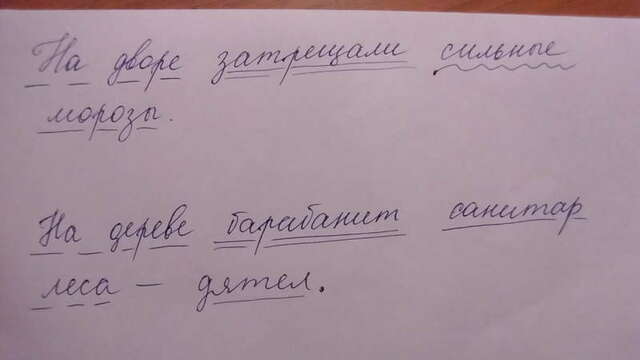 На дворе затрещали сильные
морозы.
На дереве барабанит санитар
леса – дятел.